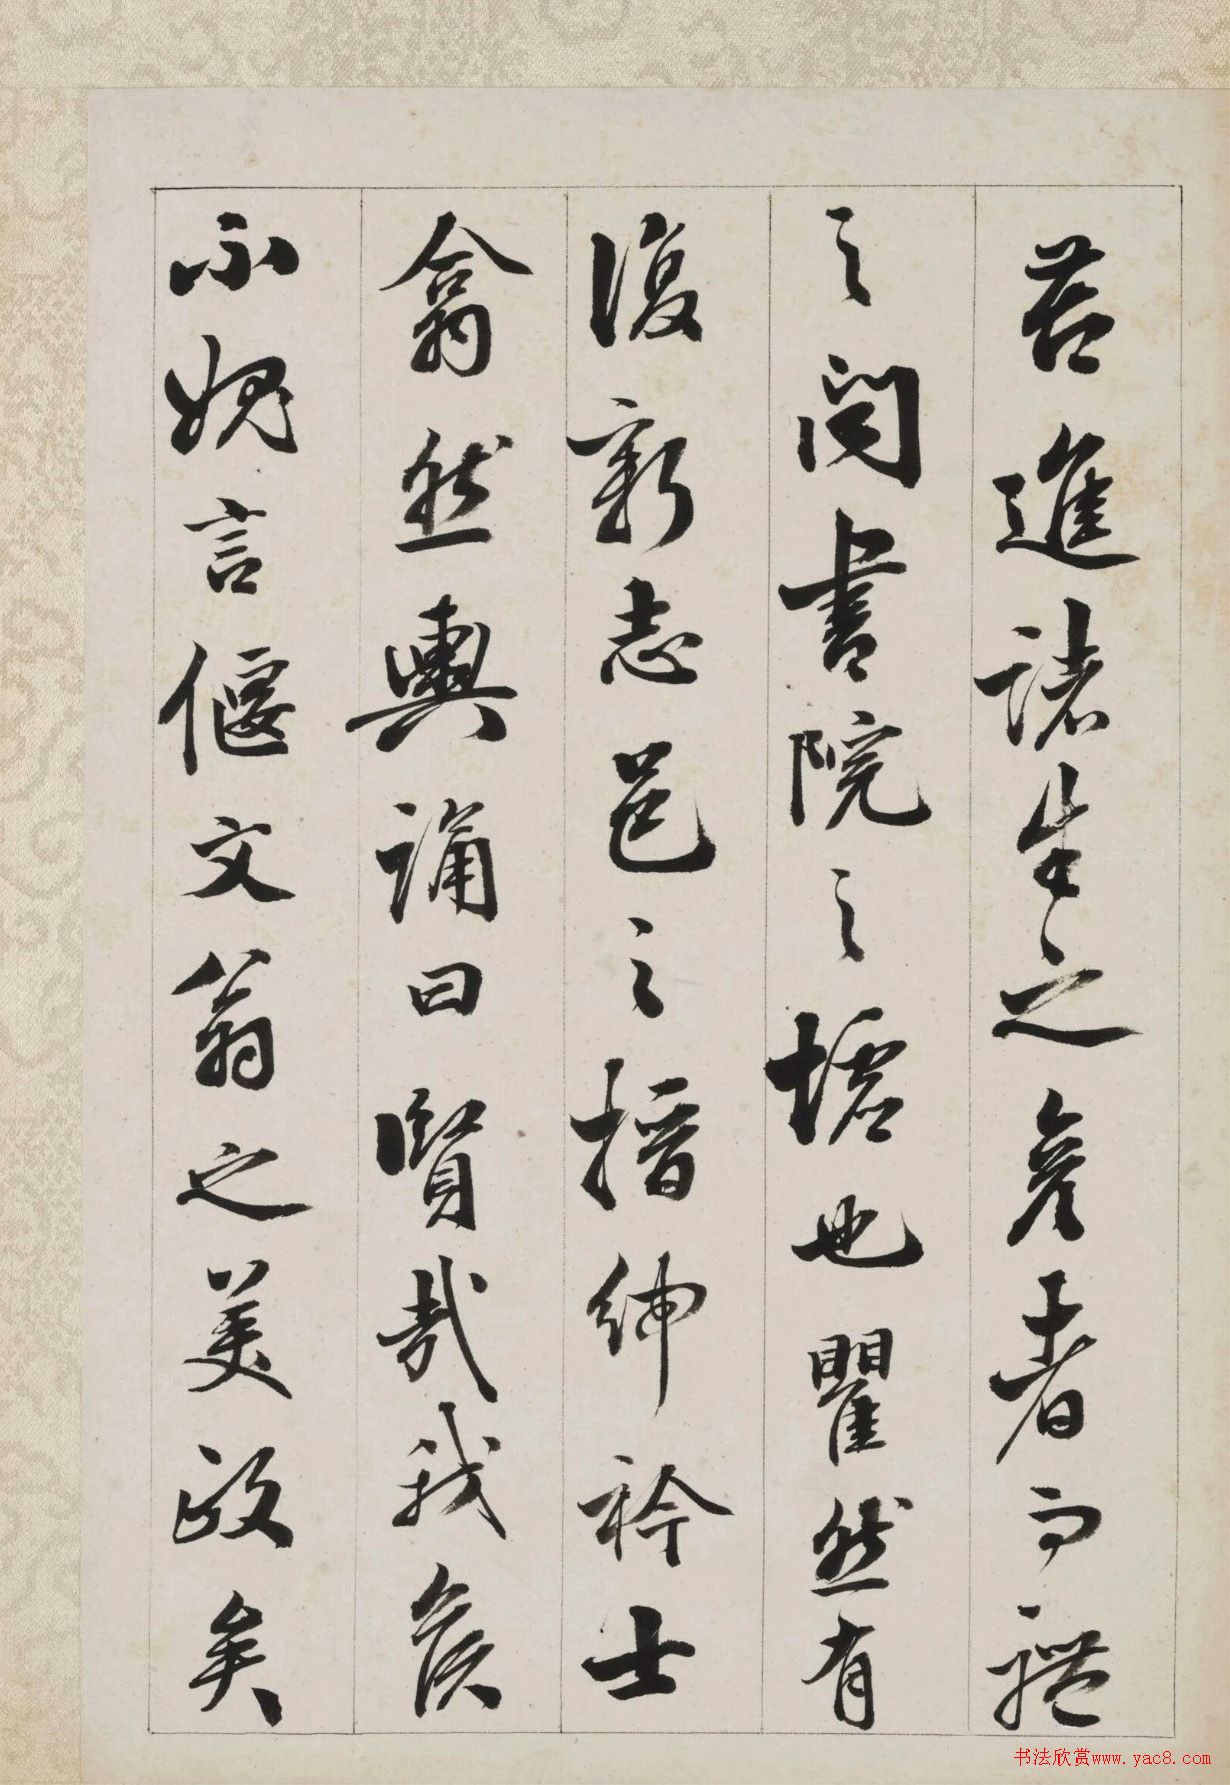 若進諸生之彥者而禮
之閔書院之墟也瞿然有
復新志邑之搢紳衿士
翕然輿誦曰賢哉我侯
不愧言偃文翁之美政矣
书法欣赏www.yac8.com